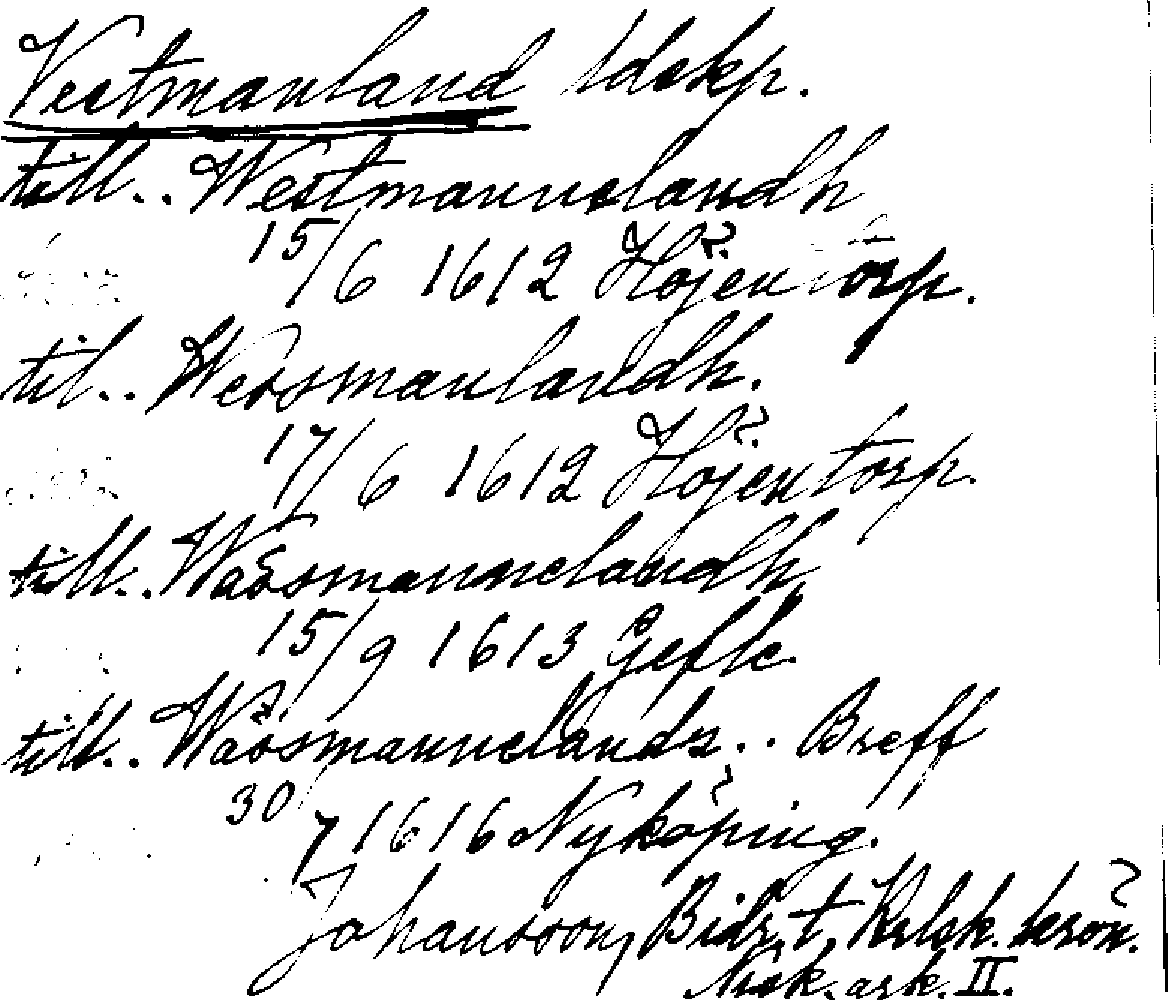 Vestmanland ldskp.
till.. Westmannelandh
15/6 1612 Höjentorp.
til.. Wessmanlandh.
17/6 1612 Höjentorp.
till.. Wässmannelandh
15/9 1613 Gefle.
till.. Wässmannelandz.. Breff
30/7 1616 Nyköping.
Johansson, Bidr. t. krön.
ark. II.